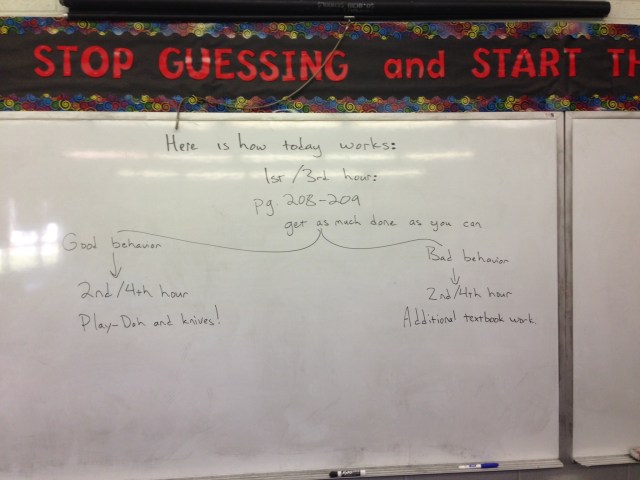 STOP GUESSING and START TH
Here is how today works:
1st/3rd hour:
pg. 208-209
get as much done as you can
Good behavior
2nd/4th hour
Play-Doh and knives!
Bad behavior
2nd/4th hour
Additional textbook work.